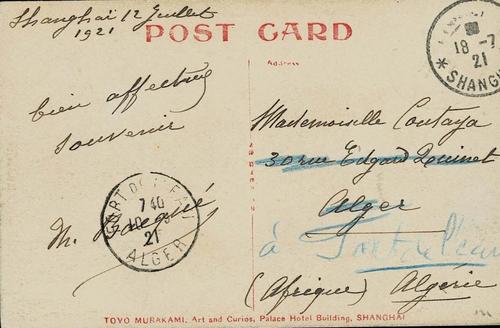 Shanghaï 12 Juillet
1921
POST CARD
Address
18-7
21
* SHANGH
bien affectueux
souvenir
Mademoiselle Coutaya
30 rue Edgard Quinet
Alger
à
(Afrique) Algérie
FORT DE L'EAU
740
21
ALGER
M.
TOYO MURAKAMI, Art and Curios, Palace Hotel Building, SHANGHAI